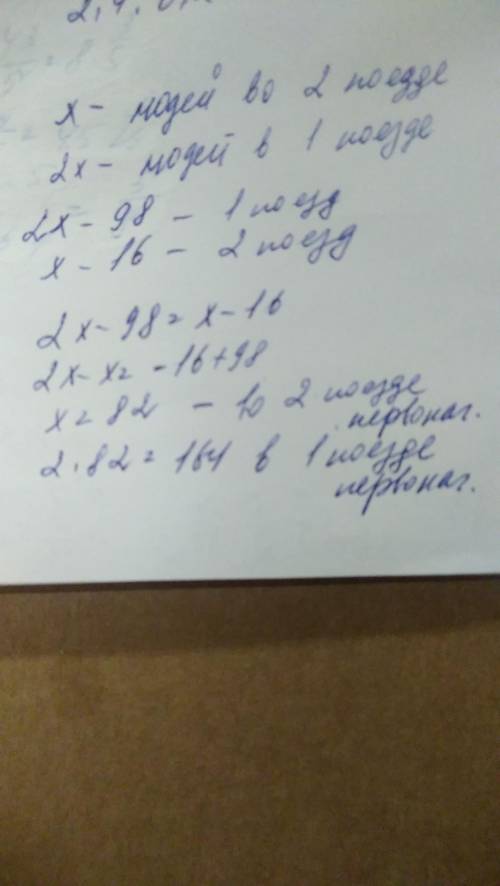 x – людей во 2 поезде
2x – людей в 1 поезде
2x – 98 – 1 поезд
x – 16 – 2 поезд
2x – 98 = x – 16
2x – x = – 16 + 98
x = 82 – во 2 поезде
первонач.
2 · 82 = 164 в 1 поезде
первонач.